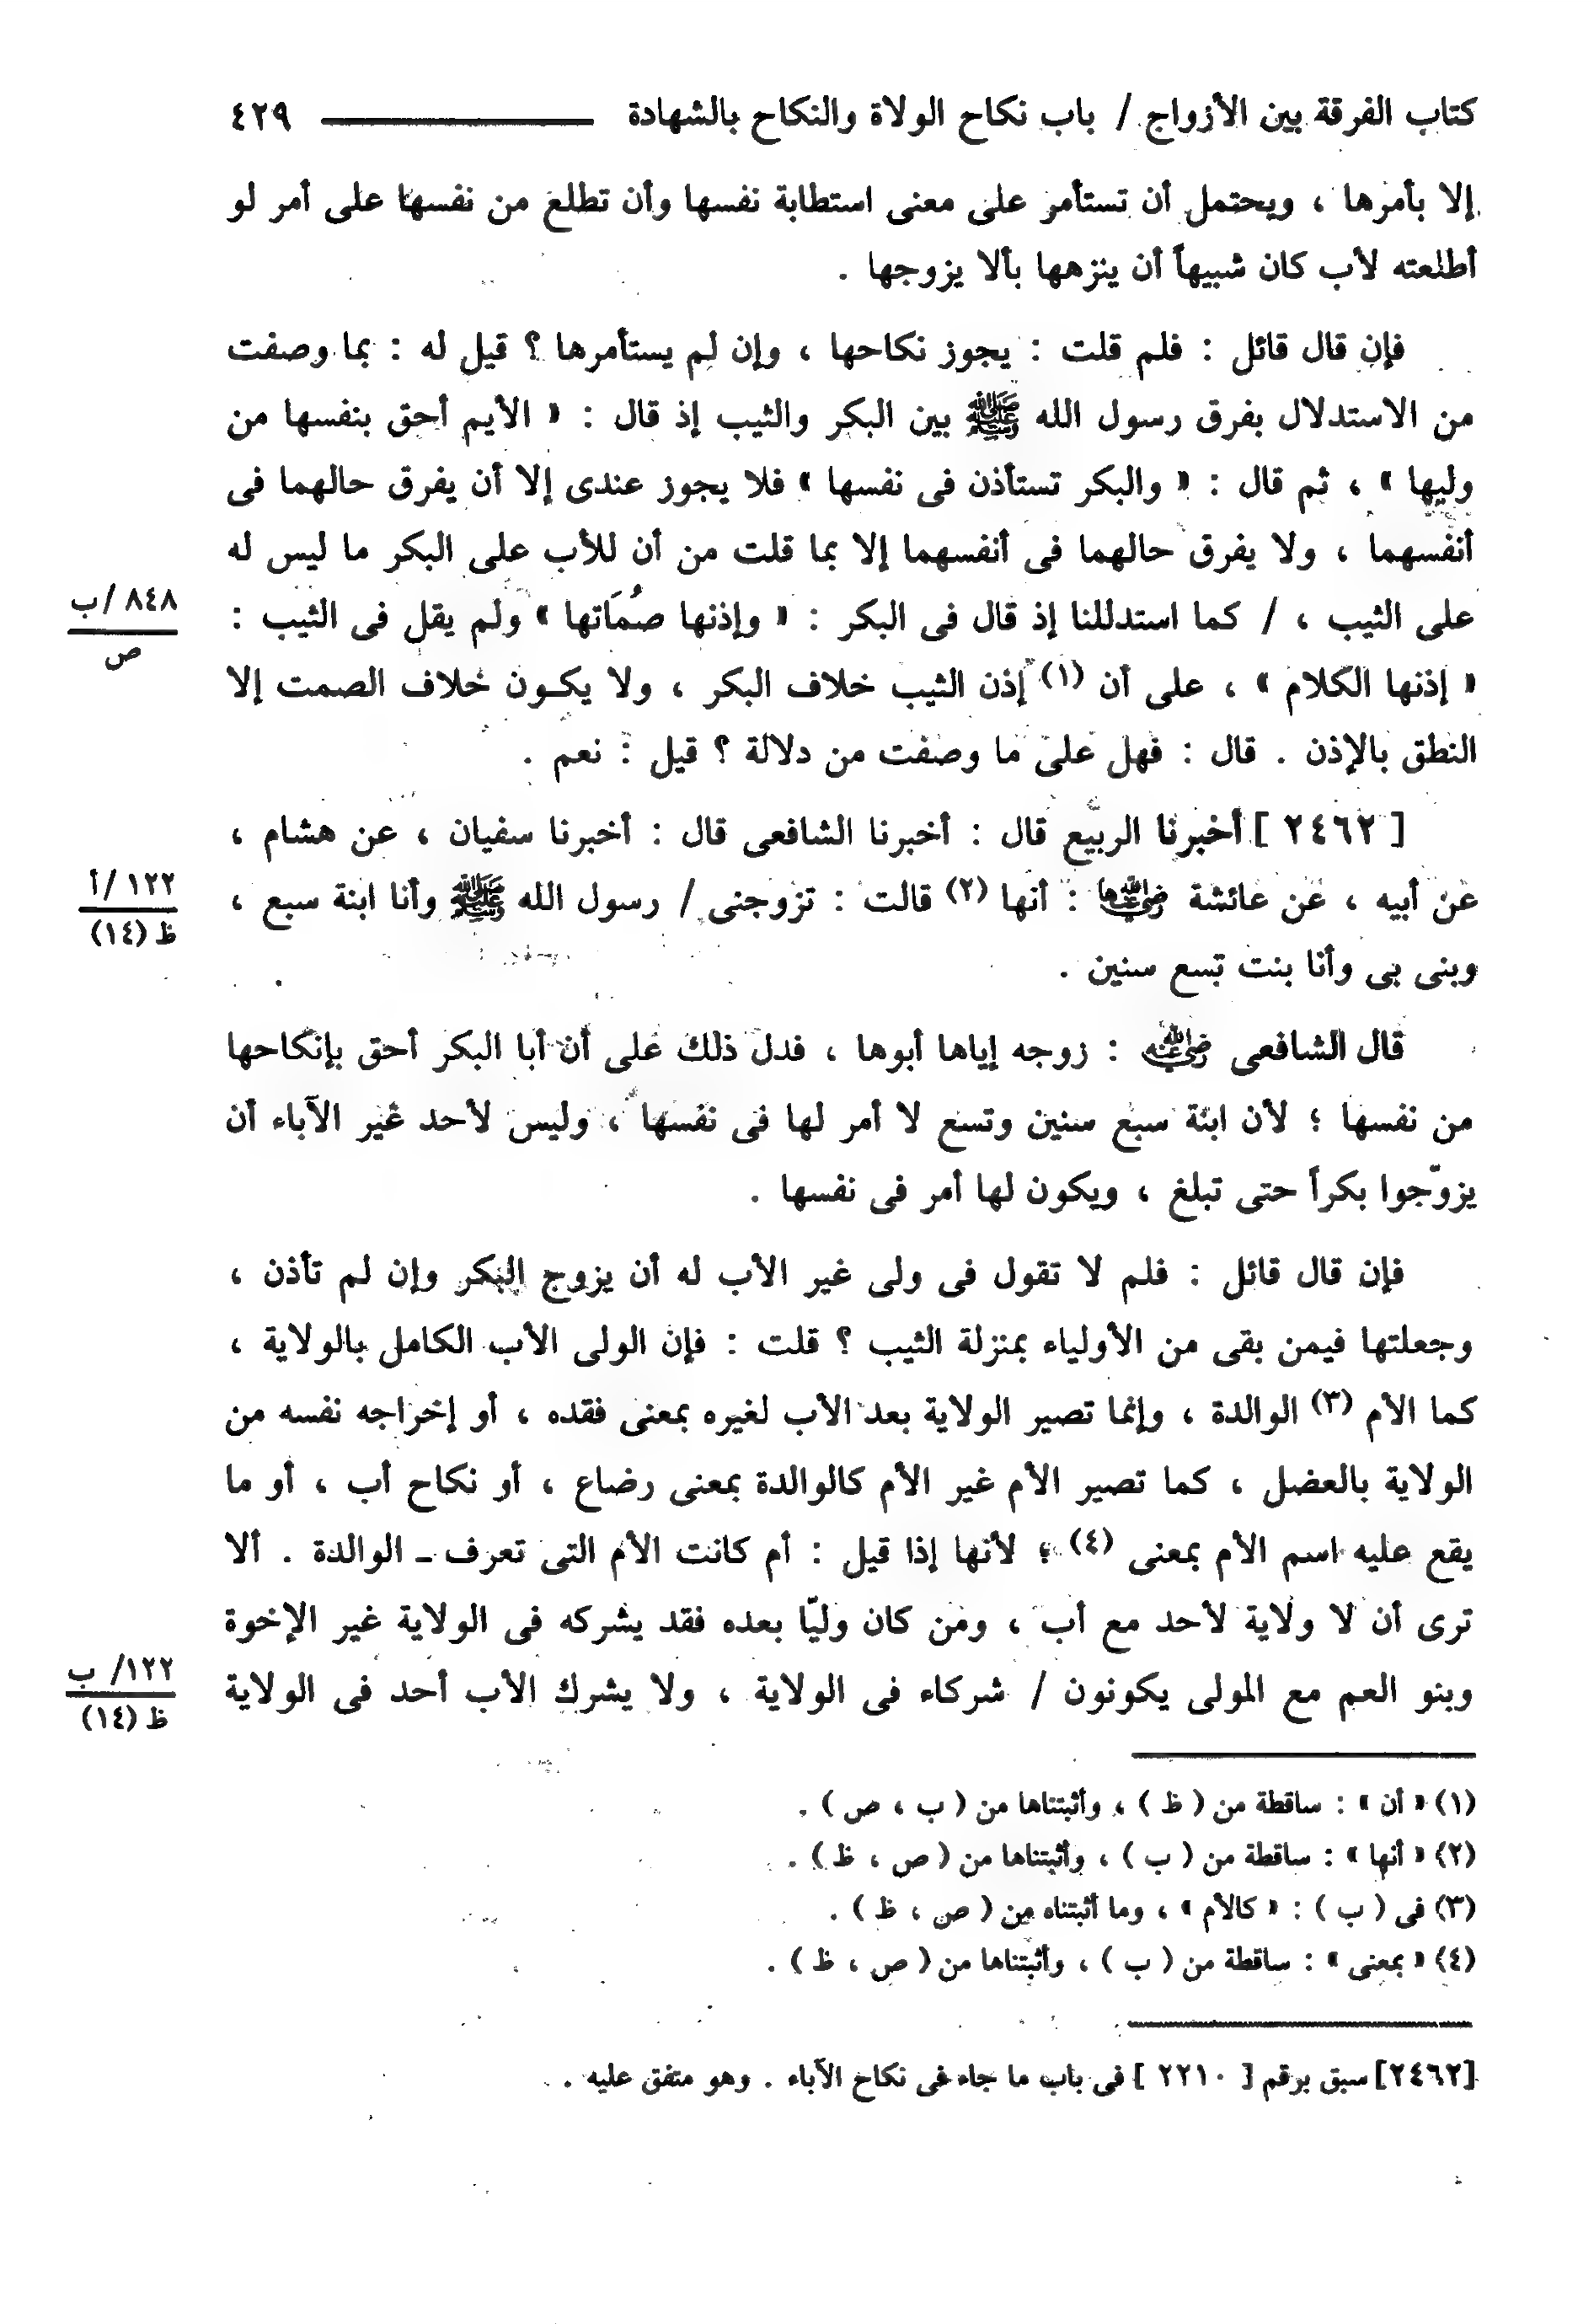 كتاب الفرقة بين الأزواج / باب نكاح الولاة والنكاح بالشهادة ــــــــــ ٤٢٩
إلا بأمرها ، ويحتمل أن تستأمر على معنى استطابة نفسها وأن تطلع من نفسها على أمر لو
أطلعته لأب كان شبيهاً أن ينزهها بألا يزوجها .
فإن قال قائل : فلم قلت : يجوز نكاحها ، وإن لم يستأمرها ؟ قيل له : بما وصفت
من الاستدلال بفرق رسول الله ﷺ بين البكر والثيب إذ قال : « الأيم أحق بنفسها من
وليها » ، ثم قال : « والبكر تستأذن فى نفسها » فلا يجوز عندى إلا أن يفرق حالهما فى
أنفسهما ، ولا يفرق حالهما فى أنفسهما إلا بما قلت من أن للأب على البكر ما ليس له
على الثيب ، / كما استدللنا إذ قال فى البكر : « وإذنها صُمَاتها » ولم يقل فى الثيب :
٨٤٨ /ب
ص
« إذنها الكلام » ، على أن (١) إذن الثيب خلاف البكر ، ولا يكـون خلاف الصمت إلا
النطق بالإذن . قال : فهل على ما وصفت من دلالة ؟ قيل : نعم .
[ ٢٤٦٢ ] أخبرنا الربيع قال : أخبرنا الشافعى قال : أخبرنا سفيان ، عن هشام ،
عن أبيه ، عن عائشة رضي الله عنها : أنها (٢) قالت : تزوجنى / رسول الله ﷺ وأنا ابنة سبع ،
١٢٢ /أ
ظ (١٤)
وبنى بى وأنا بنت تسع سنين .
قال الشافعى رضي الله عنه : زوجه إياها أبوها ، فدل ذلك على أن أبا البكر أحق بإنكاحها
من نفسها ؛ لأن ابنة سبع سنين وتسع لا أمر لها فى نفسها ، وليس لأحد غير الآباء أن
يزوّجوا بكراً حتى تبلغ ، ويكون لها أمر فى نفسها .
فإن قال قائل : فلم لا تقول فى ولى غير الأب له أن يزوج البكر وإن لم تأذن ،
وجعلتها فيمن بقى من الأولياء بمنزلة الثيب ؟ قلت : فإن الولى الأب الكامل بالولاية ،
كما الأم (٣) الوالدة ، وإنما تصير الولاية بعد الأب لغيره بمعنى فقده ، أو إخراجه نفسه من
الولاية بالعضل ، كما تصير الأم غير الأم كالوالدة بمعنى رضاع ، أو نكاح أب ، أو ما
يقع عليه اسم الأم بمعنى (٤) ؛ لأنها إذا قيل : أم كانت الأم التى تعرف ــ الوالدة . ألا
ترى أن لا ولاية لأحد مع أب ، ومن كان وليّا بعده فقد يشركه فى الولاية غير الإخوة
وبنو العم مع المولى يكونون / شركاء فى الولاية ، ولا يشرك الأب أحد فى الولاية
١٢٢/ ب
ظ (١٤)
(١) « أن » : ساقطة من ( ظ ) ، وأثبتناها من ( ب ، ص ) .
(٢) « أنها » : ساقطة من ( ب ) ، وأثبتناها من ( ص ، ظ ) .
(٣) فى ( ب ) : « كالأم » ، وما أثبتناه من ( ص ، ظ ) .
(٤) « بمعنى » : ساقطة من ( ب ) ، وأثبتناها من ( ص ، ظ ) .
[٢٤٦٢] سبق برقم [ ٢٢١٠ ] فى باب ما جاء فى نكاح الآباء . وهو متفق عليه .